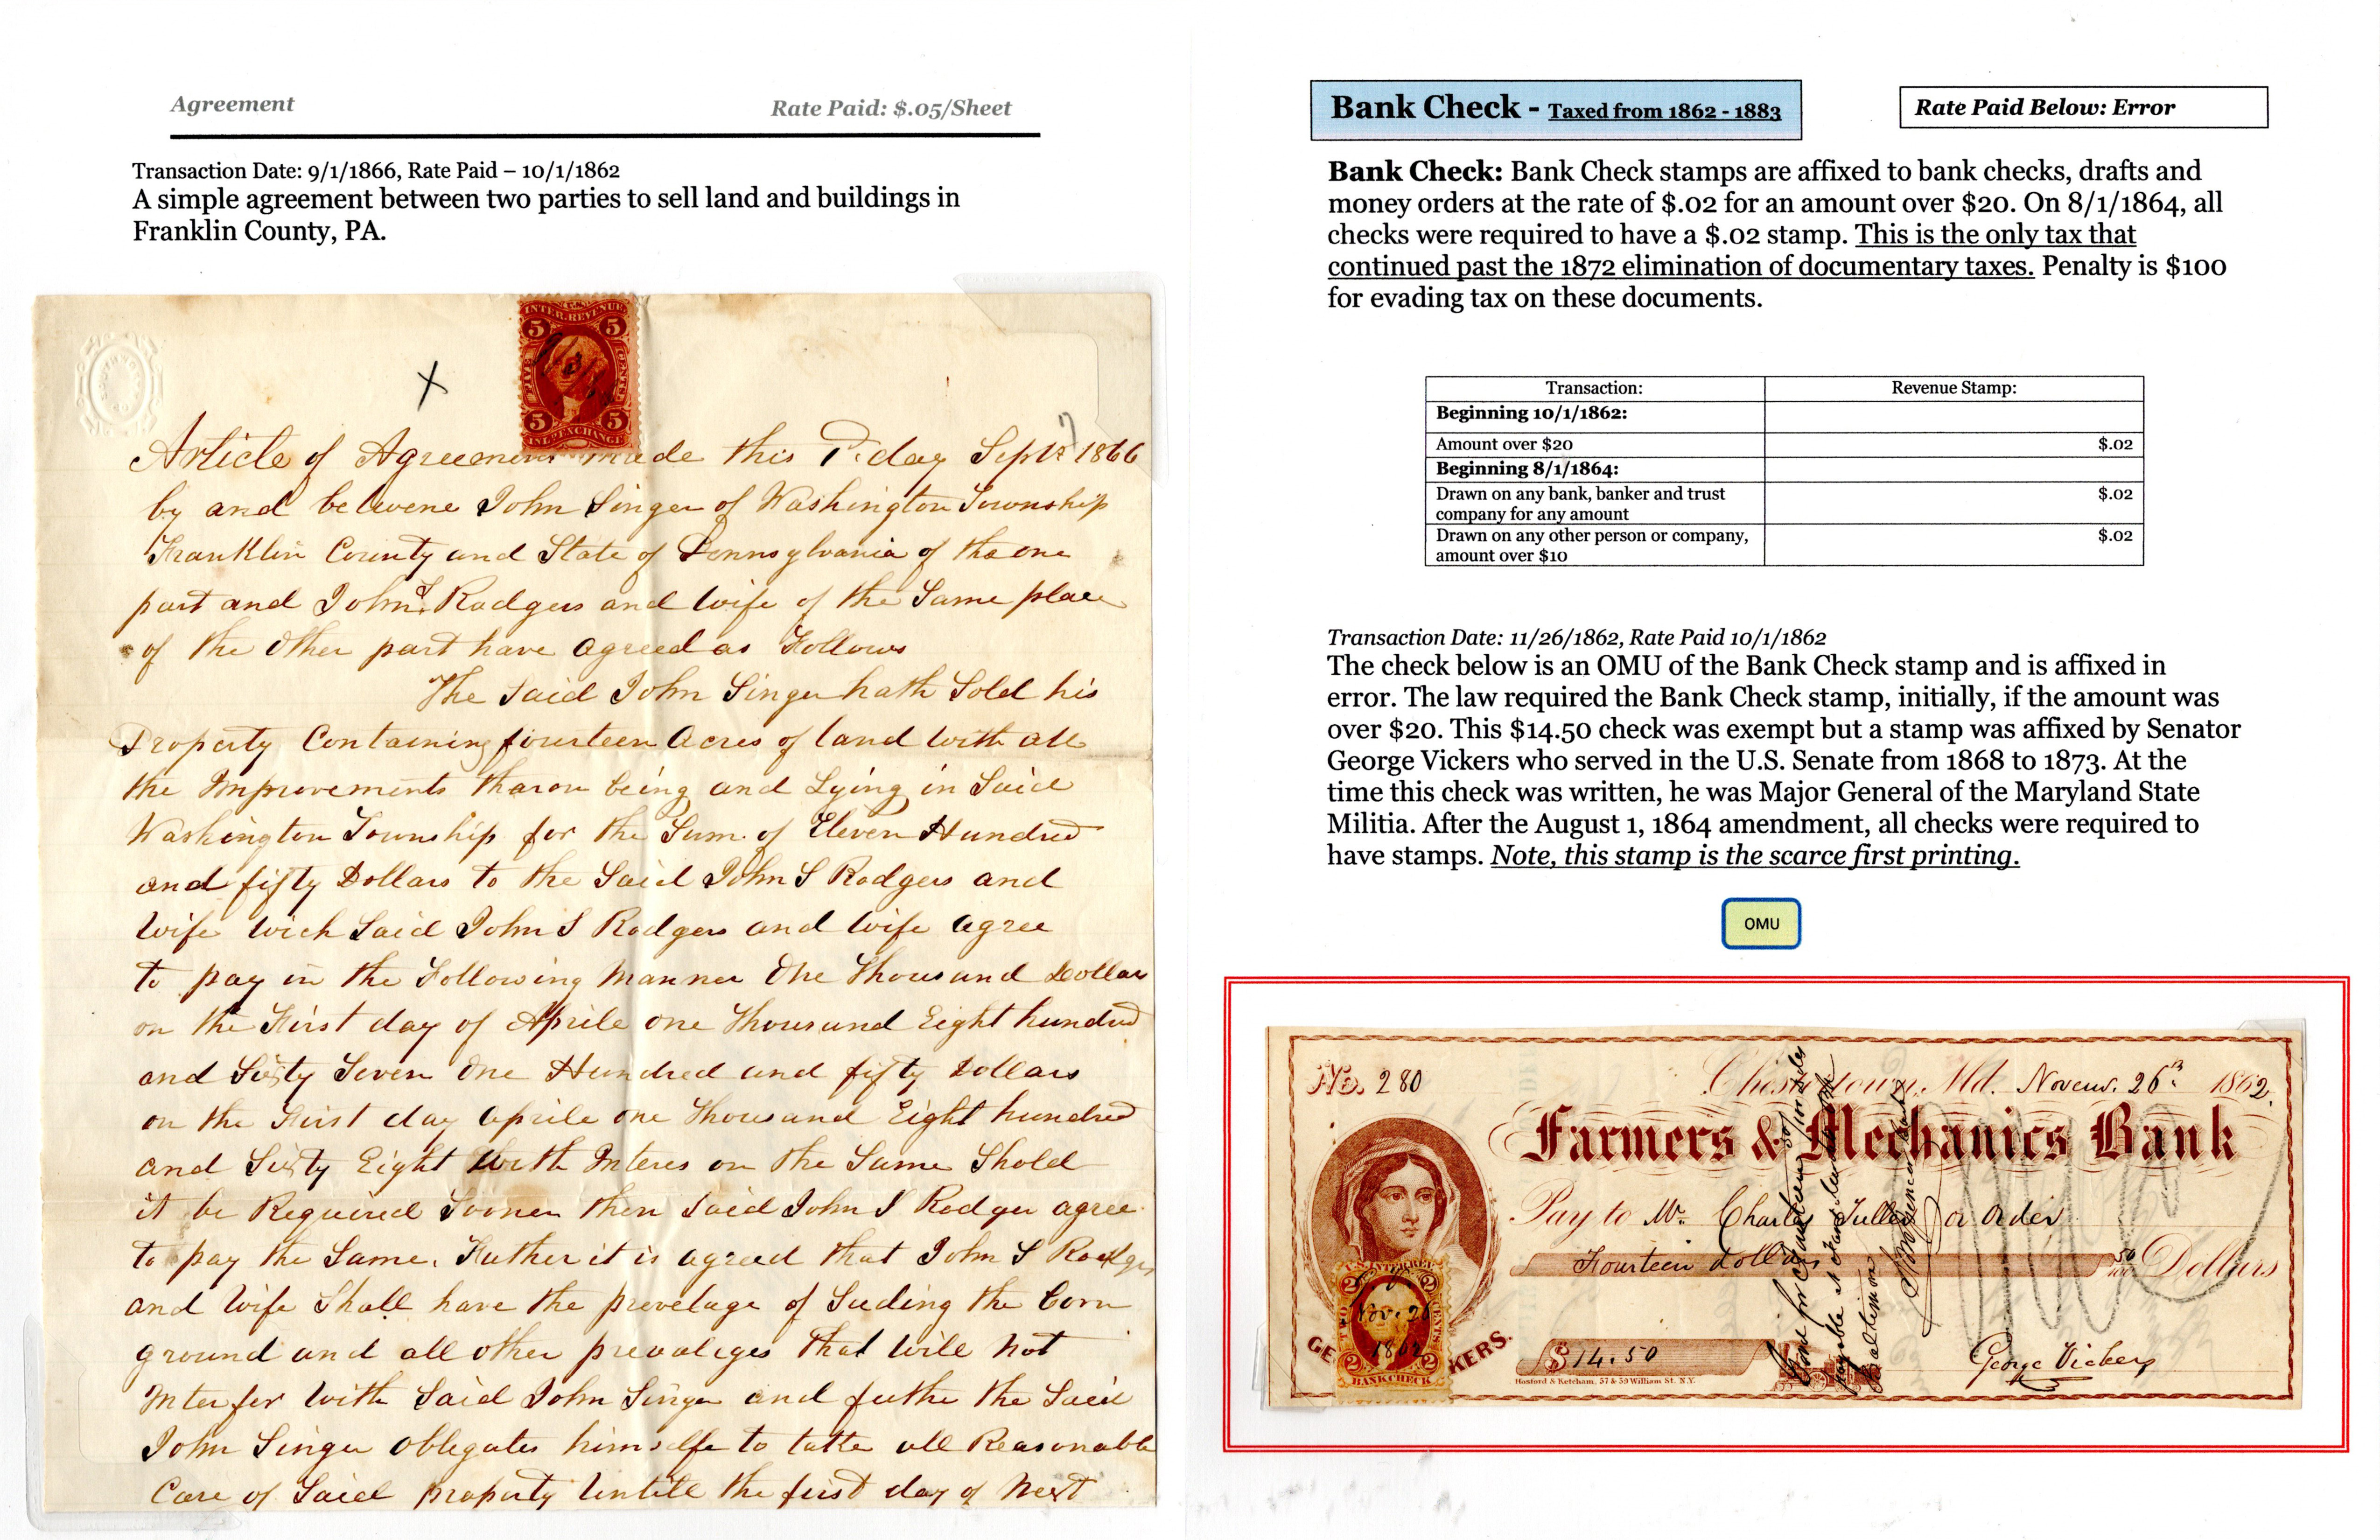 Agreement
Rate Paid: $.05/Sheet
Transaction Date: 9/1/1866, Rate Paid – 10/1/1862
A simple agreement between two parties to sell land and buildings in
Franklin County, PA.
INTER. REVENUE
5 5
FIVE CENTS
5 5
INL. EXCHANGE
X
Article of Agreement made this day Sept 1st 1866
by and betwene John Singer of Washington Township
Franklin County and State of Pennsylvania of the one
part and John S. Rodgers and wife of the Same place
of the Other part have agreed as Follows
The Said John Singer hath Sold his
Property Containing fourteen Acres of land with all
the Improvements tharon being and Lying in Said
Washington Township for the Sum of Eleven Hundred
and fifty Dollars to the Said John S Rodgers and
Wife wich Said John S Rodgers and wife agree
to pay in the Following Manner One Thousand Dollars
on the First day of Aprile one Thousand Eight hundred
and Sixty Seven One Hundred and fifty Dollars
on the First day Aprile one Thousand Eight hundred
and Sixty Eight With Interes on the Same Shold
it be Required Sooner then Said John S Rodger agree
to pay the Same. Futher it is agreed that John S Rodgers
and Wife Shall have the prevelage of Suding the Corn
ground and all other prevaliges that will not
Interfer with Said John Singer and futhe the Said
John Singer obligates himselfe to take all Reasonable
Care of Said property Untill the first day of Next
Bank Check - Taxed from 1862 - 1883
Rate Paid Below: Error
Bank Check: Bank Check stamps are affixed to bank checks, drafts and
money orders at the rate of $.02 for an amount over $20. On 8/1/1864, all
checks were required to have a $.02 stamp. This is the only tax that
continued past the 1872 elimination of documentary taxes. Penalty is $100
for evading tax on these documents.
Transaction: Revenue Stamp:
Beginning 10/1/1862:
Amount over $20 $.02
Beginning 8/1/1864:
Drawn on any bank, banker and trust $.02
company for any amount
Drawn on any other person or company, $.02
amount over $10
Transaction Date: 11/26/1862, Rate Paid 10/1/1862
The check below is an OMU of the Bank Check stamp and is affixed in
error. The law required the Bank Check stamp, initially, if the amount was
over $20. This $14.50 check was exempt but a stamp was affixed by Senator
George Vickers who served in the U.S. Senate from 1868 to 1873. At the
time this check was written, he was Major General of the Maryland State
Militia. After the August 1, 1864 amendment, all checks were required to
have stamps. Note, this stamp is the scarce first printing.
OMU
No. 280 Chestertown, Md. Novem. 26th 1862.
Farmers & Mechanics Bank
Pay to Mr. Charles or Order
Fourteen dollars 50/100 Dollars
U.S. INTER. REV.
2 2
Nov. 26
1862
TWO CENTS
2 2
BANK CHECK
GE KERS.
$14.50
Hosford & Ketcham, 57 & 59 William St. N.Y.
George Vickers
payable at
Baltimore